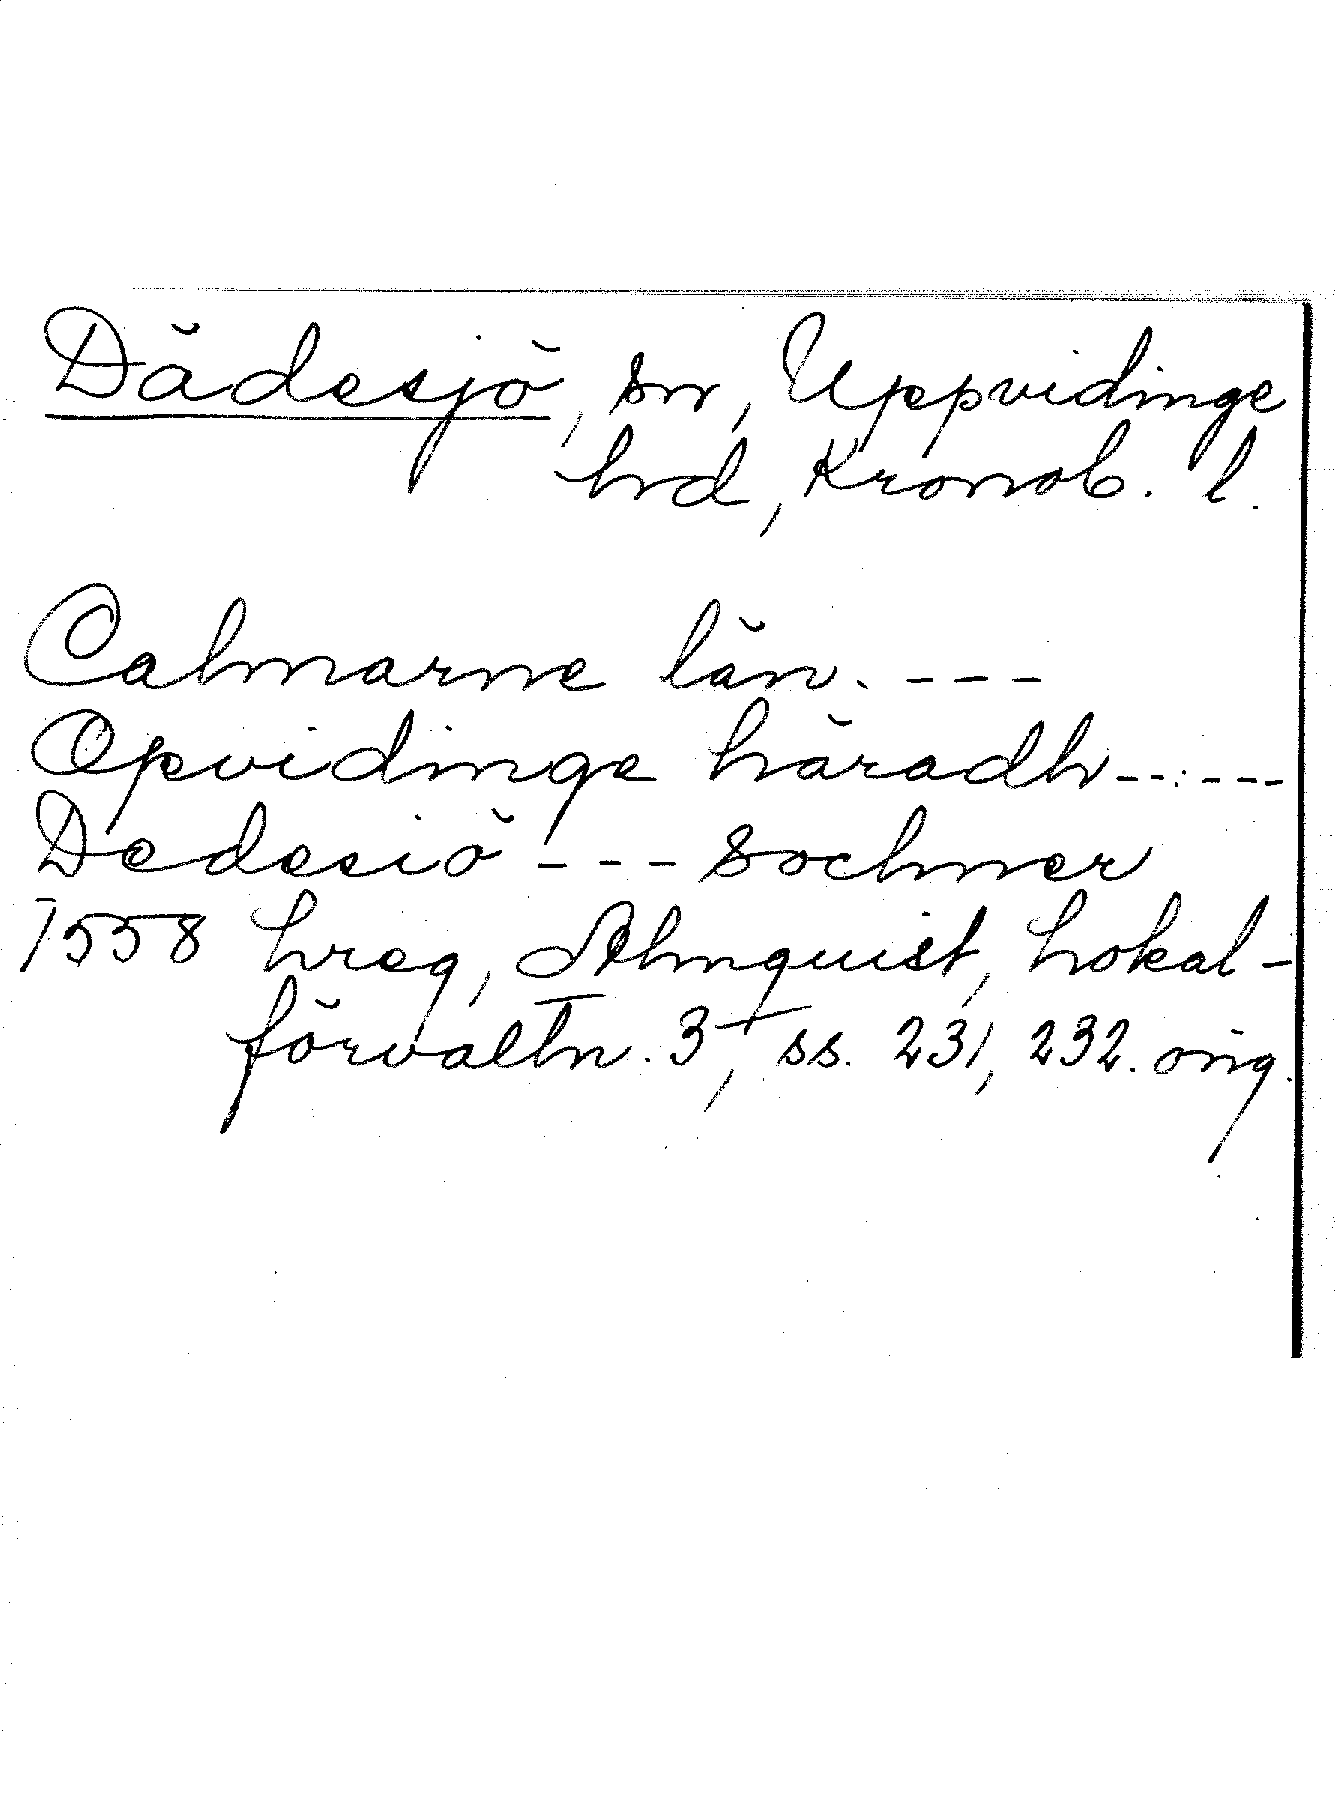 Dädesjö, sn, Uppvidinge
hd, Kronob. l.
Calmarne län. ---
Opvidinge häradh -- : ---
Dedesiö --- sochner
1558 hreg, Almquist, Lokal-
förvaltn. 3, ss. 231, 232. orig.